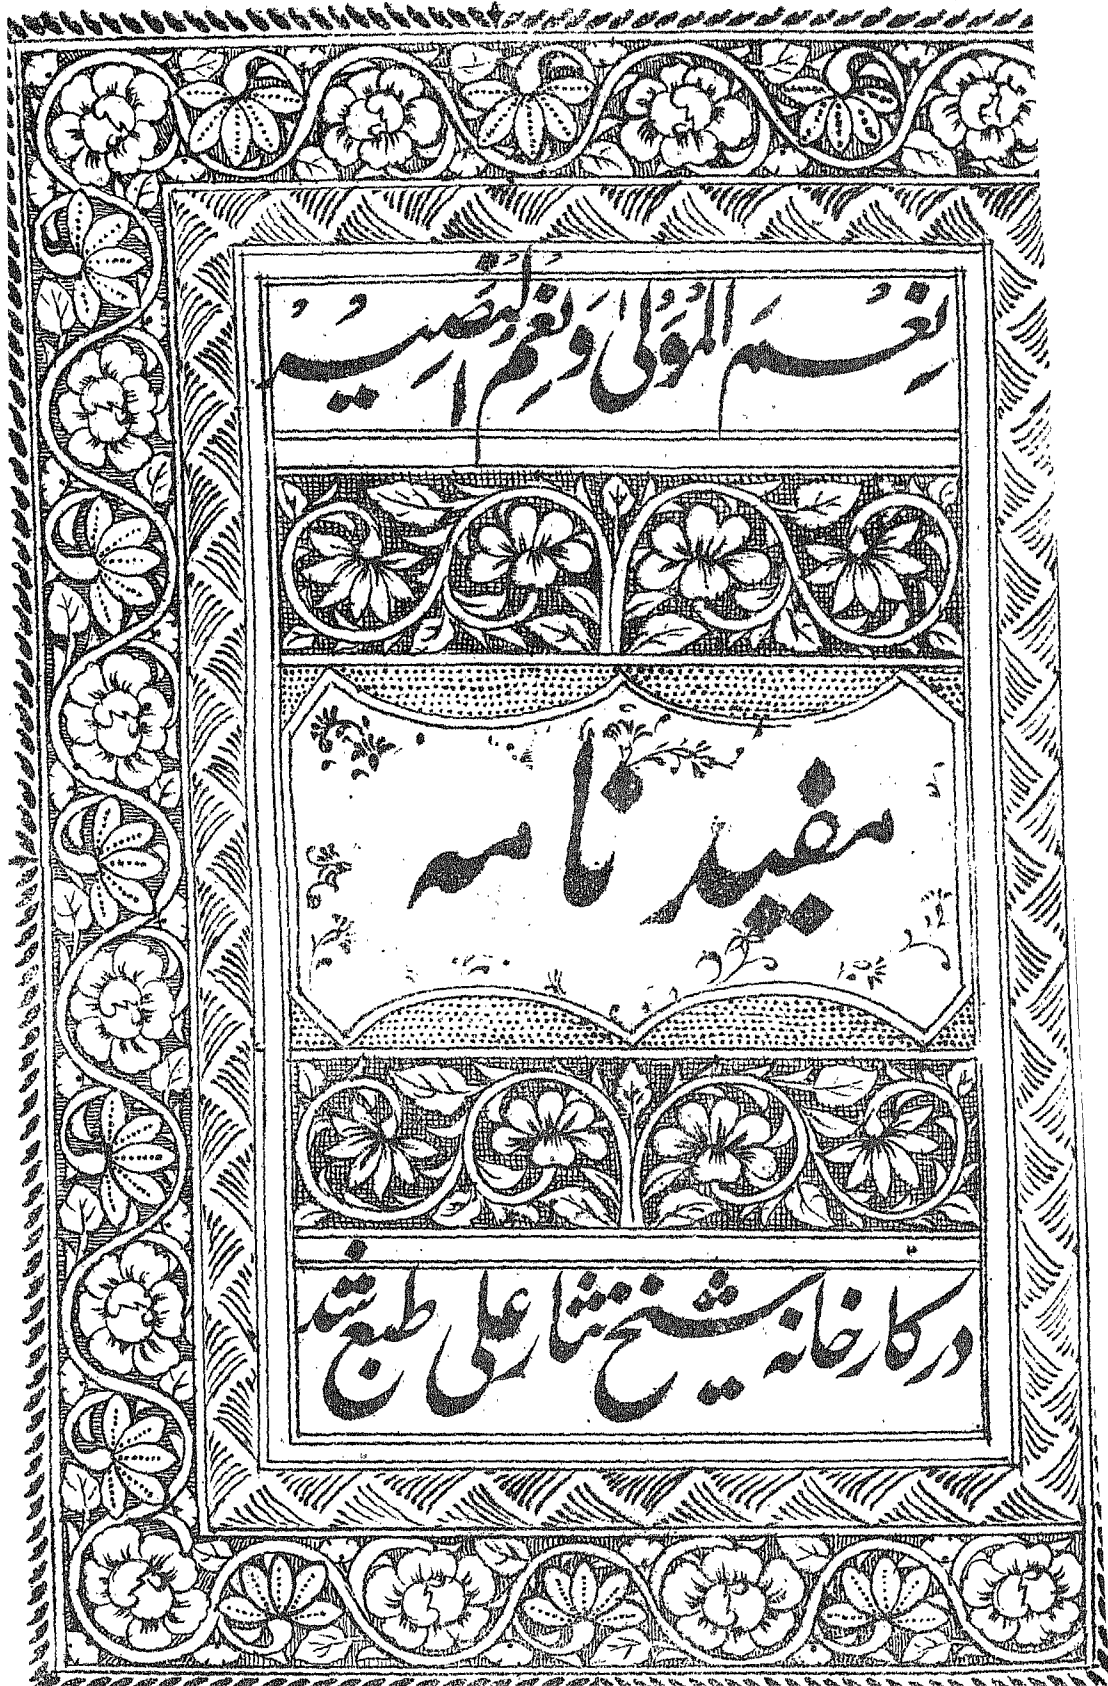 نِعْمَ الْمَوْلٰی وَنِعْمَ النَّصِیْرُ
مفید نامہ
در کارخانہ شیخ نثار علی طبع شد